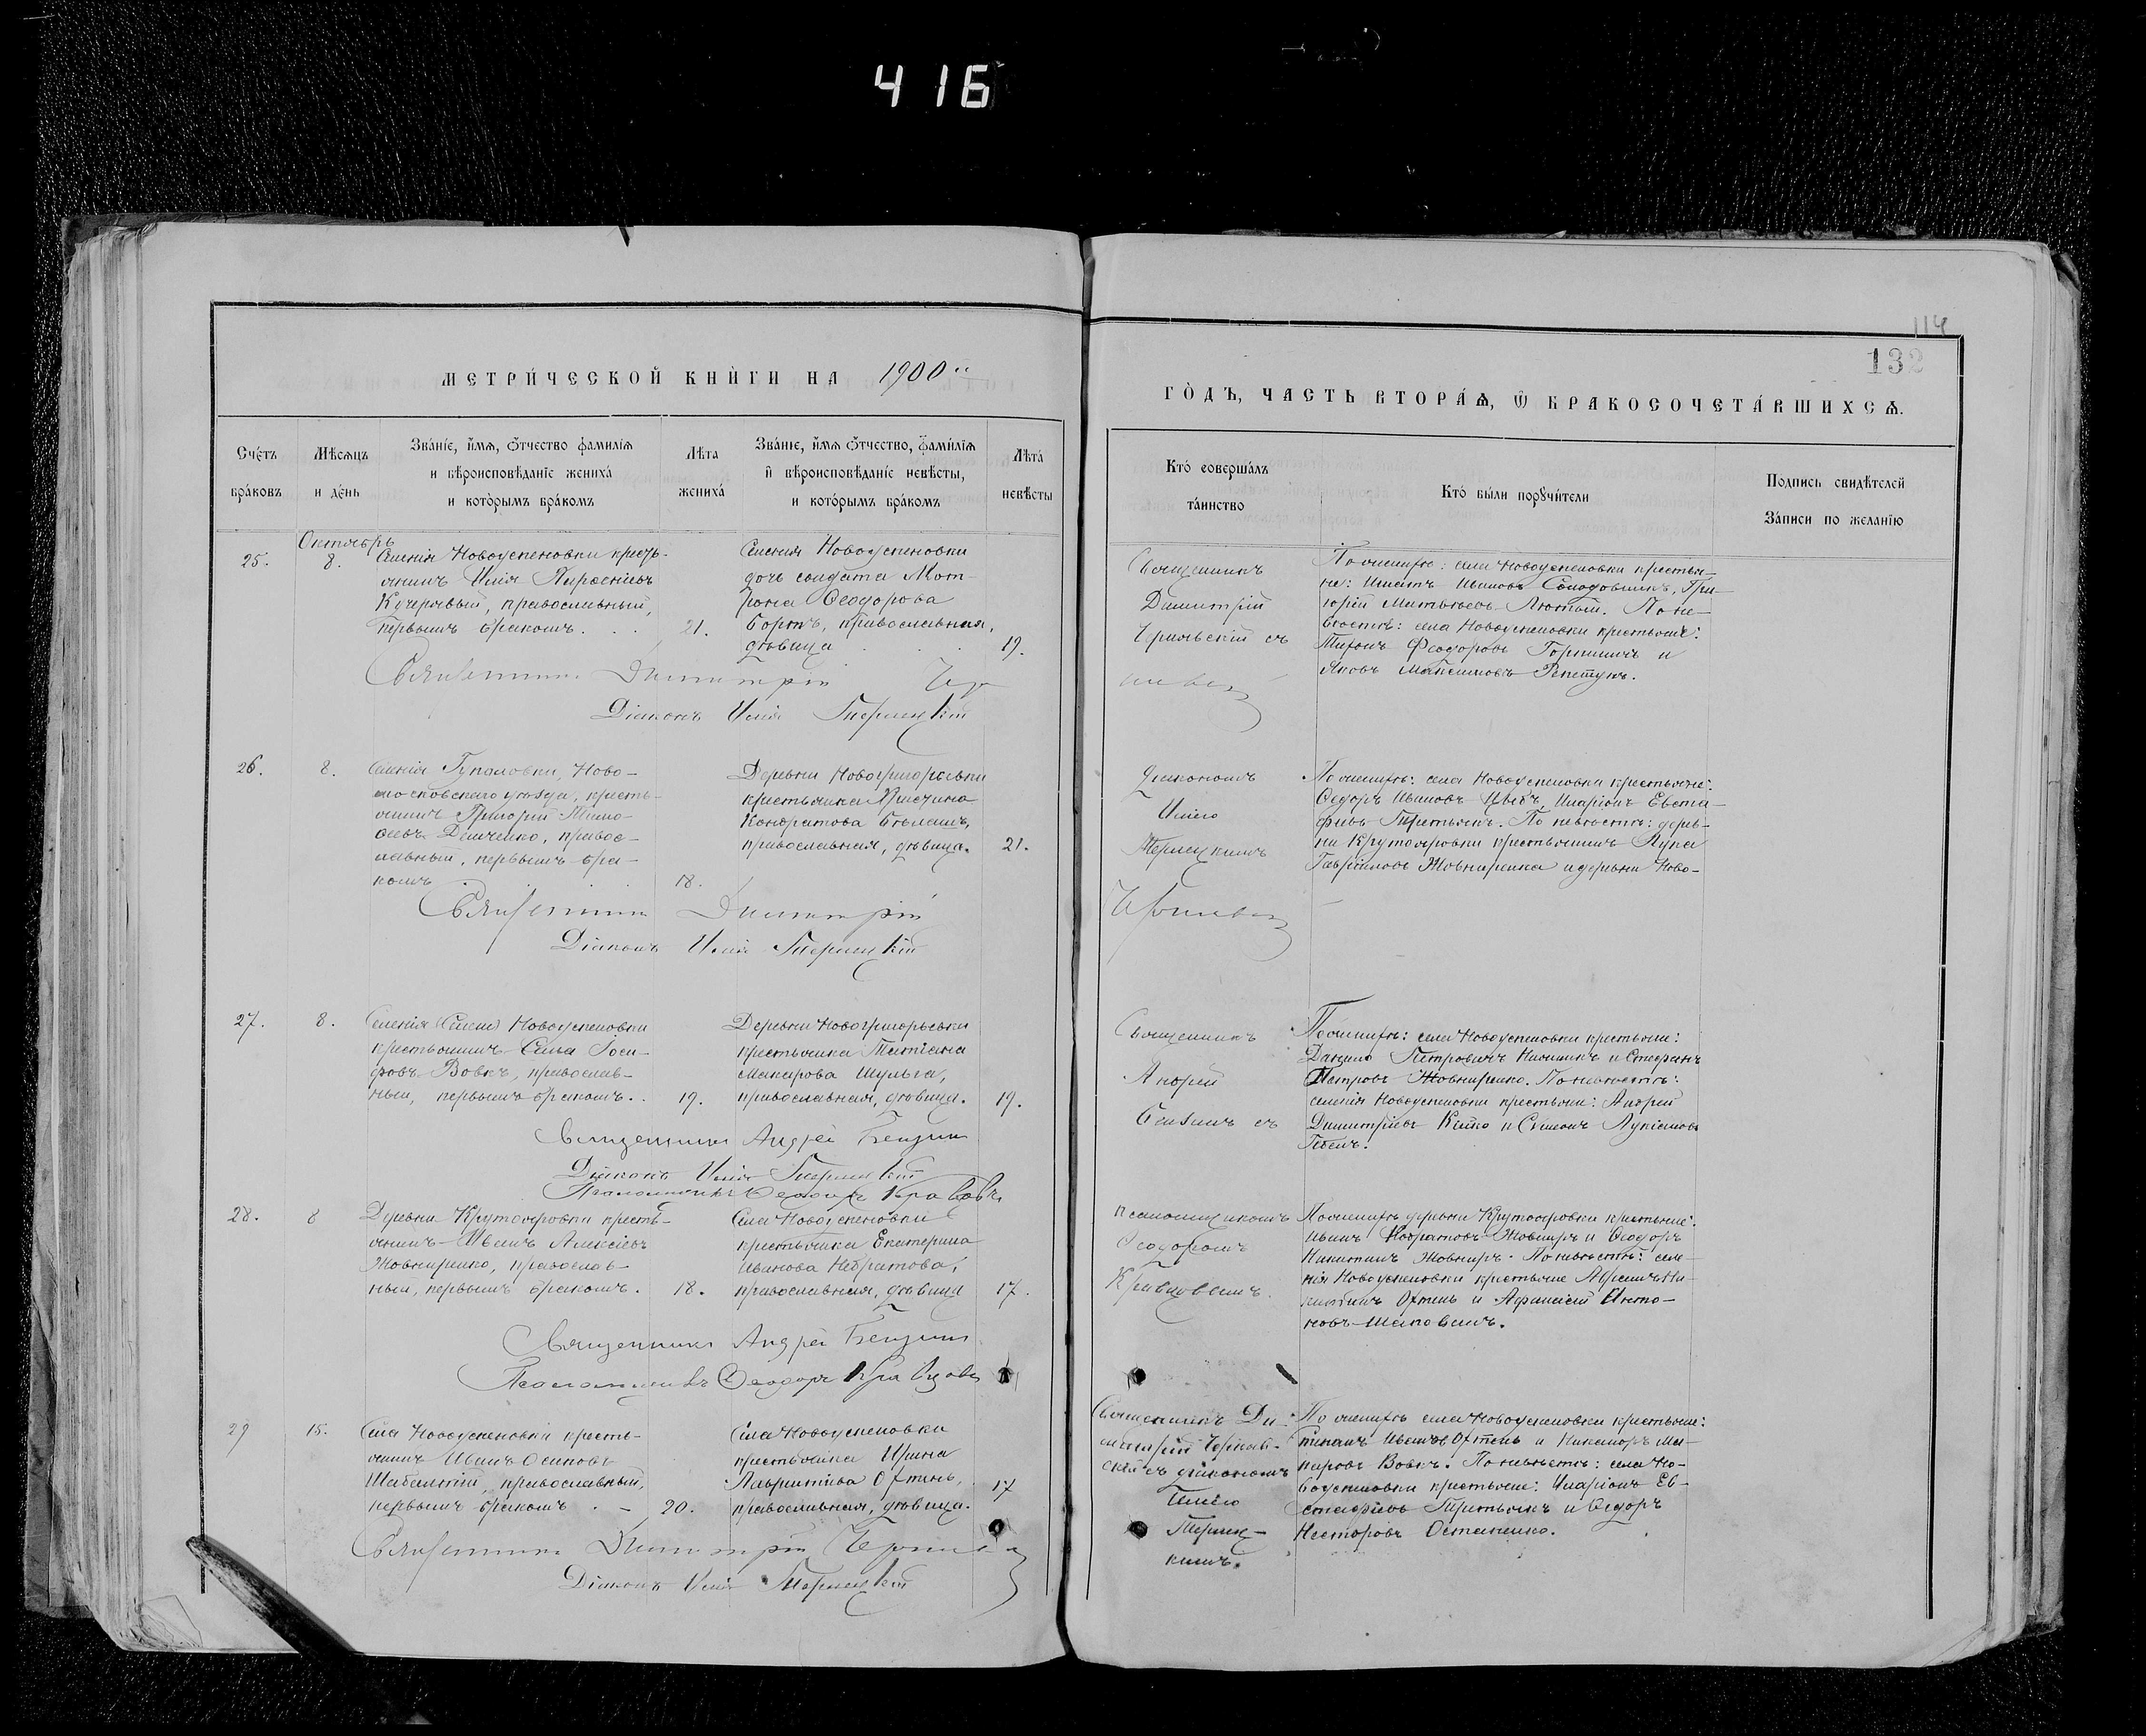 416
114
132
МЕТРИ́ЧЕСКОЙ КНИ́ГИ НА 1900
ГО́ДЪ, ЧАСТЬ ВТОРА́Ѧ, Ѿ БРАКОСОЧЕТА́ВШИХСѦ.
Сче́тъ бра́ковъ
Мѣ́сѧцъ и де́нь
Зва́нїе, и́мѧ, ѻ҆́тчество фамилїѧ
и вѣроисповѣ́данїе жениха́
и кото́рымъ бра́комъ
Лѣта жениха́
Зва́нїе, и́мѧ ѻ҆́тчество, фами́лїѧ
и҆ вѣроисповѣ́данїе невѣ́сты,
и кото́рымъ бра́комъ
Лѣта́ невѣ́сты
Кто́ соверша́лъ
та́инство
Кто́ бы́ли порꙋчи́тели
Подпись свидѣ́телей
За́писи по жела́нїю
Октябрь
25.
8.
Селенія Новоуспеновки кресть-
янинъ Илія
Кучерявый, православный,
первымъ бракомъ. . .
21.
Селенія Новоуспеновки
дочь солдата Мот-
рона Ѳеодорова
православная,
дѣвица . . .
19.
Священникъ
Димитрій
съ
По женихѣ: села Новоуспеновки крестья-
не: Игнатъ Ивановъ Солодовникъ, Гри-
горій Матвѣевъ Лютый. По не-
вѣстѣ: села Новоуспеновки крестьяне:
Ѳеодоровъ и
Яковъ Максимовъ
Священникъ Димитрій
Діаконъ Илія Терлецкій
26.
8.
Селенія Гупаловки, Ново-
московскаго уѣзда, кресть-
янинъ Григорій Тимо-
ѳеевъ Демченко, правос-
лавный, первымъ бра-
комъ . . .
18.
Деревни Новогригорьевки
крестьянка Христина
Кондратова
православная, дѣвица.
21.
Діакономъ
Иліею
Терлецкимъ
По женихѣ: села Новоуспеновки крестьяне:
Ѳедоръ Ивановъ Иларіонъ Евста-
фіевъ Третьякъ. По невѣстѣ: дерев-
ни Крутояровки крестьянинъ Лука
Гавріиловъ Жовниренко и деревни Ново-
Священникъ Димитрій
Діаконъ Илія Терлецкій
27.
8.
Селенія Новоуспеновки
крестьянинъ Савва Іоси-
фовъ Вовкъ, православ-
ный, первымъ бракомъ. .
19.
Деревни Новогригорьевки
крестьянка Татіана
Макарова Шульга,
православная, дѣвица.
19.
Священникъ
Андрей
Бензинъ съ
По женихѣ: села Новоуспеновки крестьяне:
Данило Петровичъ и Стефанъ
Петровъ Жовниренко. По невѣстѣ:
селенія Новоуспеновки крестьяне: Андрей
Димитріевъ и Симеонъ Лукіановъ
Священникъ Андрей Бензинъ
Діаконъ Илія Терлецкій
Псаломщикъ Ѳеодоръ Кравцовъ
28.
8
Деревни Крутояровки кресть-
янинъ Иванъ Алексіевъ
Жовниренко, православ-
ный, первымъ бракомъ.
18.
Села Новоуспеновки
крестьянка Екатерина
Иванова
православная, дѣвица
17.
Псаломщикомъ
Ѳеодоромъ
Кравцовымъ.
По женихѣ деревни Крутояровки крестьяне:
Иванъ Жовниръ и Ѳеодоръ
Никитинъ Жовниръ. По невѣстѣ: селе-
нія Новоуспеновки крестьяне Авраамъ Ни-
китинъ и Афанасій Анто-
новъ Шаповалъ.
Священникъ Андрей Бензинъ
Псаломщикъ Ѳеодоръ Кравцовъ
29
15.
Села Новоуспеновки кресть-
янинъ Иванъ Осиповъ
православный,
первымъ бракомъ . –
20.
Села Новоуспеновки
крестьянка Ирина
Лаврентіева
православная, дѣвица.
17
Священникъ Ди-
митрій
съ діакономъ
Иліею
Терлец-
кимъ.
По женихѣ села Новоуспеновки крестьяне:
Ивановъ и Никаноръ Ма-
каровъ Вовкъ. По невѣстѣ: села Но-
воуспеновки крестьяне: Иларіонъ Ев-
стафіевъ Третьякъ и Ѳедоръ
Несторовъ Остапенко.
Священникъ Димитрій
Діаконъ Илія Терлецкій